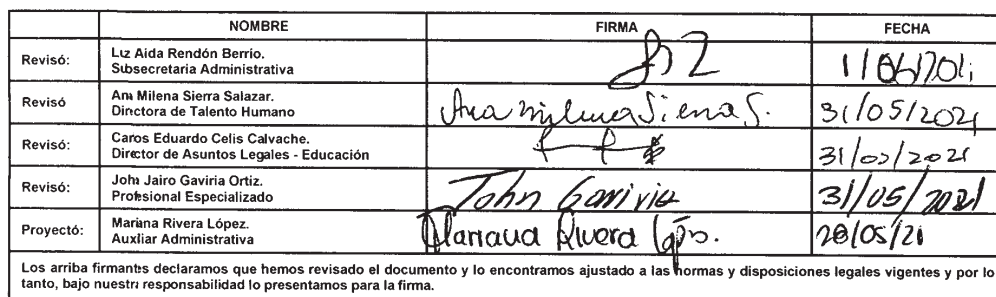 NOMBRE FIRMA FECHA
Revisó: Luz Aida Rendón Berrio. Subsecretaria Administrativa 1/06/2021
Revisó Ana Milena Sierra Salazar. Directora de Talento Humano Ana milena Sierra S. 31/05/2021
Revisó: Carlos Eduardo Celis Calvache. Director de Asuntos Legales - Educación 31/05/2021
Revisó: John Jairo Gaviria Ortiz. Profesional Especializado John Gaviria 31/05/2021
Proyectó: Mariana Rivera López. Auxiliar Administrativa Mariana Rivera López. 28/05/21
Los arriba firmantes declaramos que hemos revisado el documento y lo encontramos ajustado a las normas y disposiciones legales vigentes y por lo
tanto, bajo nuestra responsabilidad lo presentamos para la firma.